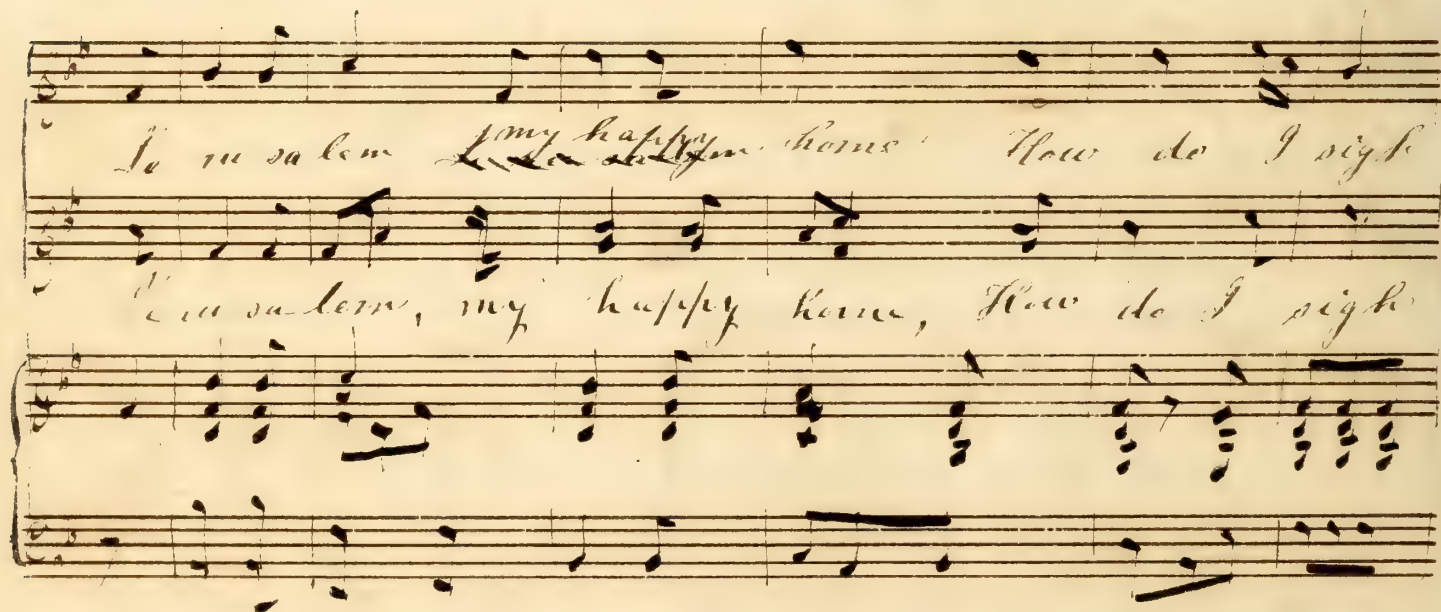 Je ru sa lem my happy home How do I sigh
Je ru sa lem, my happy home, How do I sigh